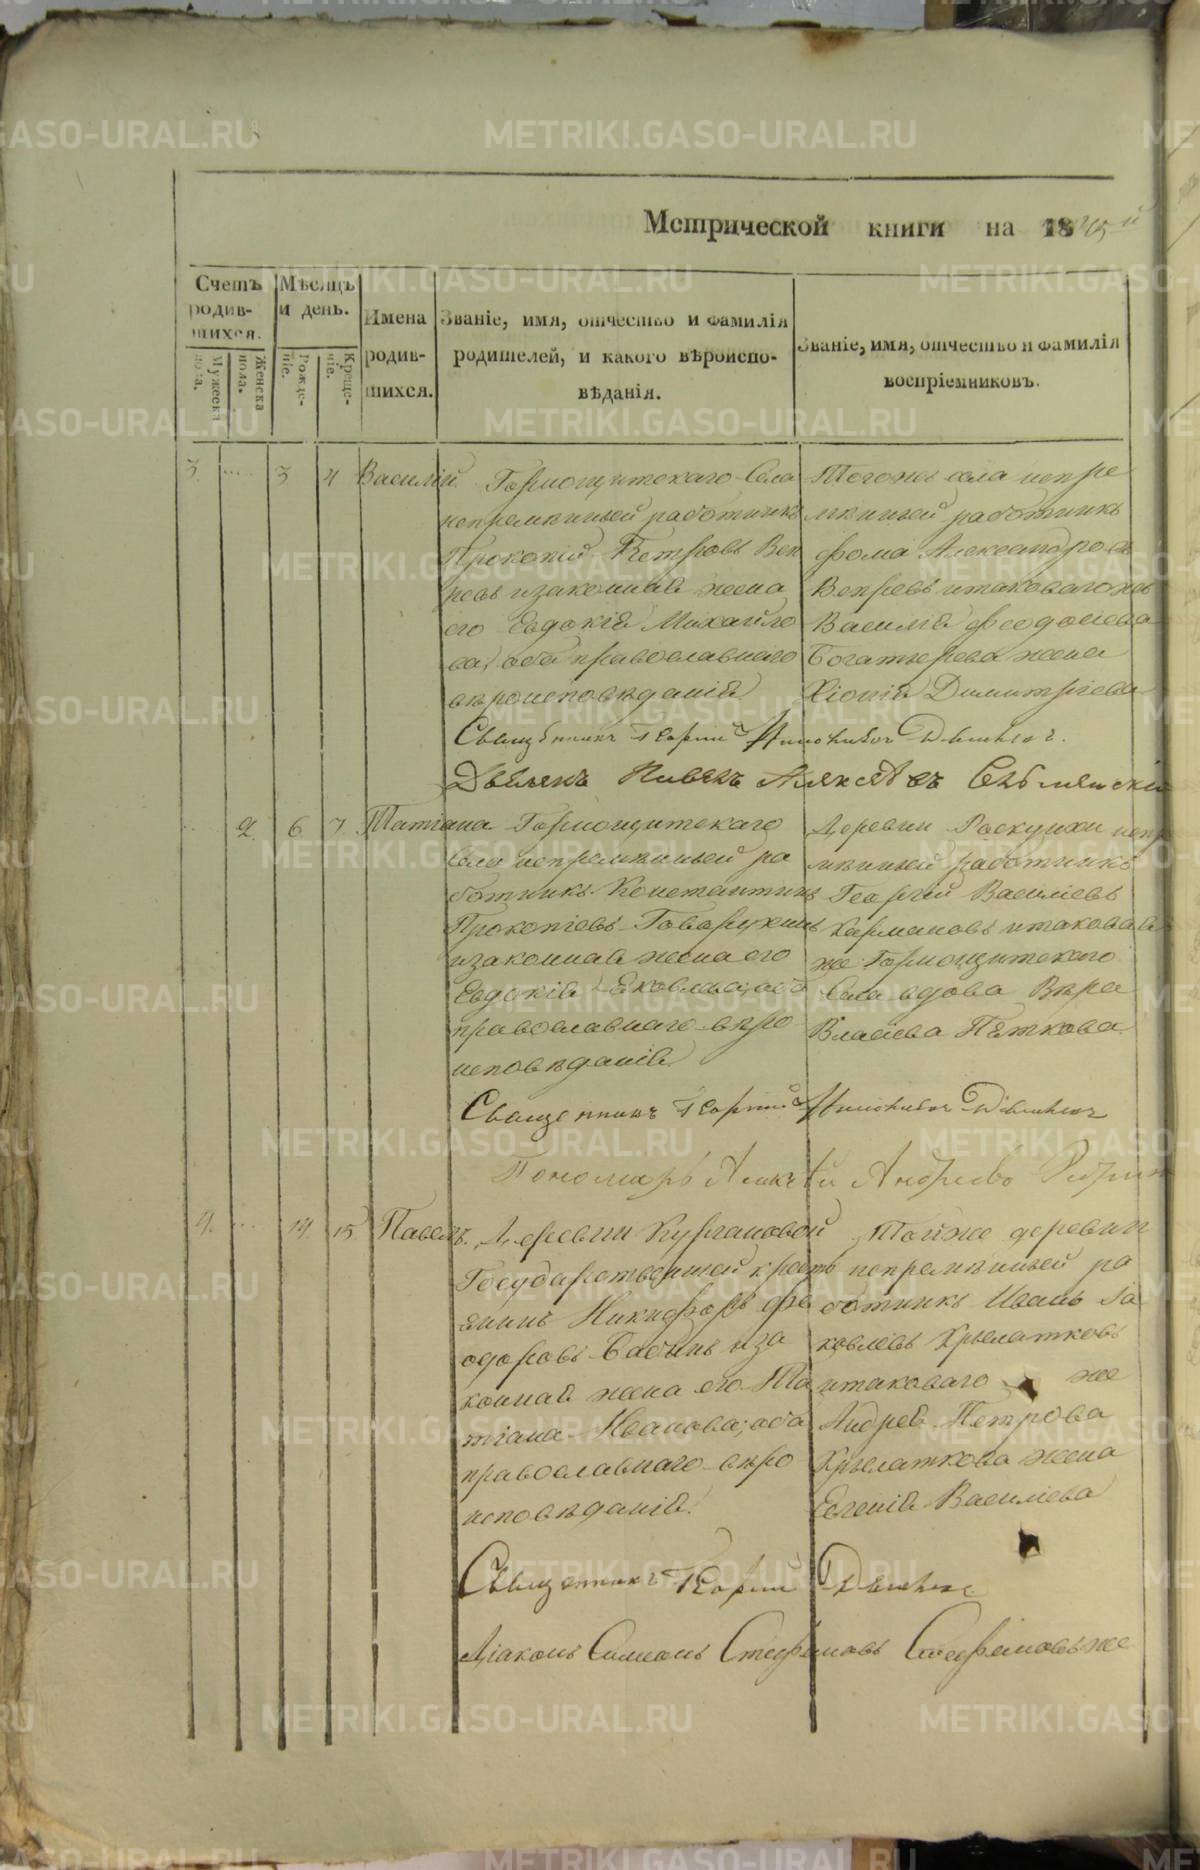 Метрической книги на 1845й
Счетъ родившихся.
Мужеска пола.
Женска пола.
Мѣсяцъ и день.
Рожденіе.
Крещеніе.
Имена родившихся.
Званіе, имя, отчество и фамилія
родителей, и какого вѣроиспо-
вѣданія.
Званіе, имя, отчество и фамилія
воспріемниковъ.
3. 3 4 Василій.
Горнощитскаго Села
непремѣнный работникъ
Прокопій Петровъ Веп
ревъ изаконная жена
его Евдокія Михайло
ва, оба православнаго
вѣроисповѣданія
Тогоже села непре
мѣнный работникъ
Фома Александровъ
Вепревъ итаковагожъ
Василія Феодосіева
Богатырева жена
Хіонія Димитріева
Священникъ Георгій
Павелъ Алексѣевъ
2. 6 7 Татіана
Горнощитскаго
Села непремѣнный ра
ботникъ Константинъ
Прокопіевъ
изаконная жена его
Евдокія Яковлева, оба
православнаго вѣро
исповѣданія.
Деревни Раскуихи непре
мѣнный работникъ
Георгій Василіевъ
итаковая
же Горнощитскаго
Села вдова Вѣра
Власіева Пѣткова.
Священникъ Георгій
Пономарь Алексѣй Андреевъ
4. 14 15 Павелъ.
Деревни Кургановой
Государственный кресть
янинъ Никифоръ Фе
одоровъ Бабинъ иза
конная жена его Та
тіана Иванова; оба
православнаго вѣро
исповѣданія.
Тойже деревни
непремѣнный ра
ботникъ Иванъ Іа
ковлевъ Крылатковъ
итаковаго же
Андрея Петрова
Крылаткова жена
Евгенія Василіева
Священникъ Георгій
Діаконъ Симеонъ Стефановъ Стефановъ же
METRIKI.GASO-URAL.RU